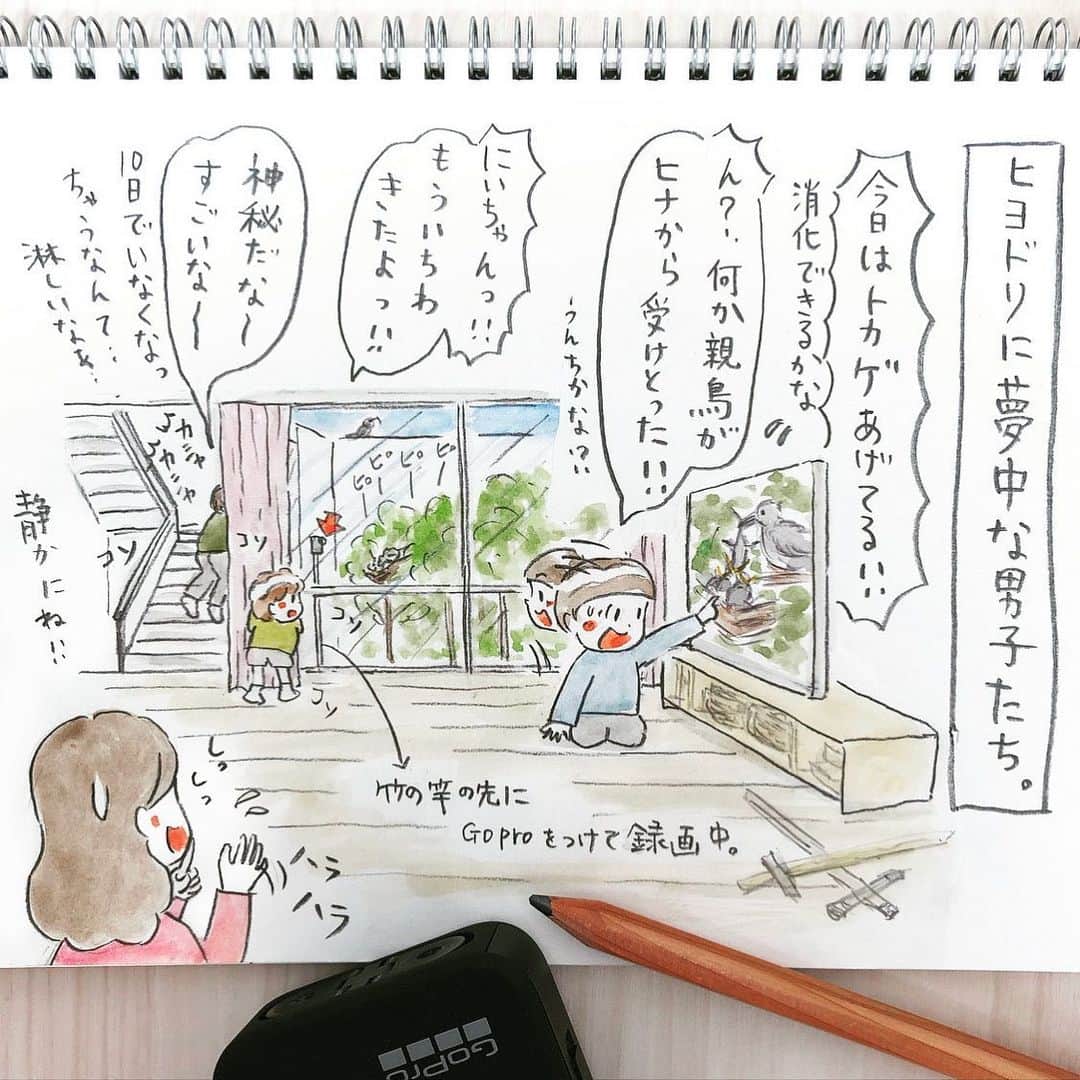 ヒヨドリに夢中な男子たち。
今日はトカゲあげてる!!
消化できるかな
ん?、何か親鳥が
ヒナから受けとった!!
うんちかな!?
にいちゃんっ!!
もういちわ
きたよっ!!
神秘だな〜
すごいな〜
10日でいなくなっ
ちゃうなんて…
淋しいなぁ…
カシャ
カシャ
ピーピーピー
ピーピーピー
コソ
コソ
コソ
コソ
静かにね!!
しっしっ
ハラ
ハラ
竹の竿の先に
Goproをつけて録画中。
GoPro